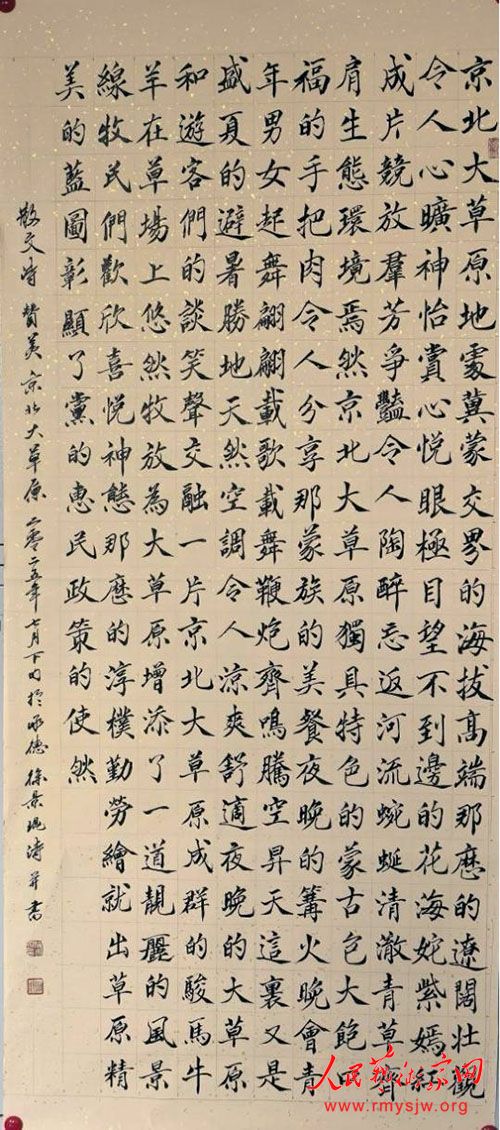 京北大草原地處冀蒙交界的海拔高端那麽的遼闊壯觀
令人心曠神怡賞心悅眼極目望不到邊的花海姹紫嫣紅
成片競放羣芳爭豔令人陶醉忘返河流蜿蜒清澈青草齊
肩生態環境焉然京北大草原獨具特色的蒙古包大飽口
福的手把肉令人分享那蒙族的美餐夜晚的篝火晚會青
年男女起舞翩翩載歌載舞鞭炮齊鳴騰空昇天這裏又是
盛夏的避暑勝地天然空調令人涼爽舒適夜晚的大草原
和遊客們的談笑聲交融一片京北大草原成群的駿馬牛
羊在草場上悠然牧放為大草原增添了一道靚麗的風景
線牧民們歡欣喜悅神態那麽的淳樸勤勞繪就出草原精
美的藍圖彰顯了黨的惠民政策的使然
散文诗 贊美京北大草原 二零二五年七月下旬於承德 徐景 并書
人民藝術家网
www.rmysjw.org